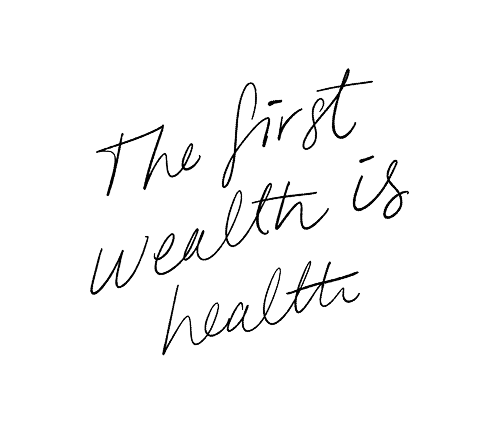 The first
wealth is
health